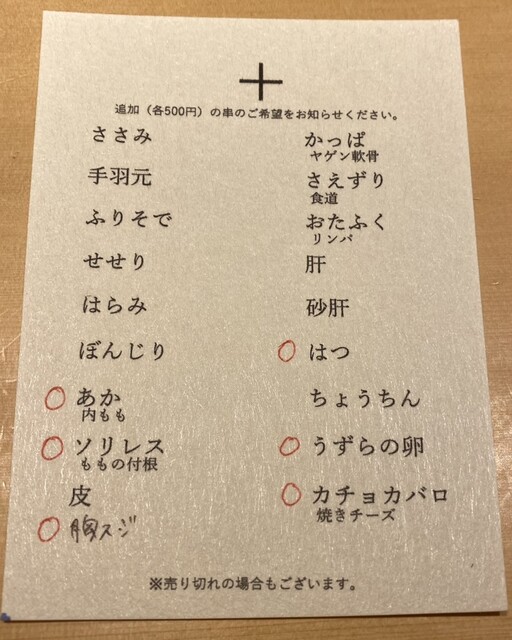 追加（各500円）の串のご希望をお知らせください。
ささみ
手羽元
ふりそで
せせり
はらみ
ぼんじり
あか
内もも
ソリレス
ももの付根
皮
胸スジ
かっぱ
ヤゲン軟骨
さえずり
食道
おたふく
リンパ
肝
砂肝
はつ
ちょうちん
うずらの卵
カチョカバロ
焼きチーズ
※売り切れの場合もございます。